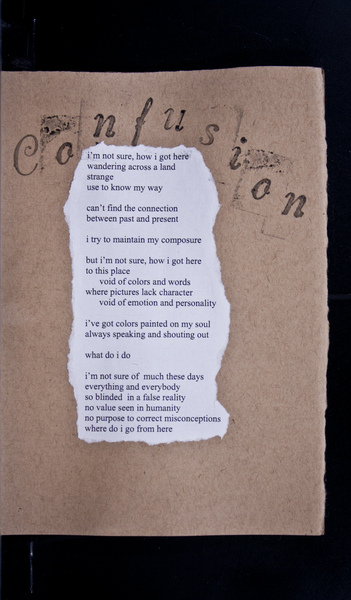 Confusion
i'm not sure, how i got here
wandering across a land
strange
use to know my way
can't find the connection
between past and present
i try to maintain my composure
but i'm not sure, how i got here
to this place
void of colors and words
where pictures lack character
void of emotion and personality
i've got colors painted on my soul
always speaking and shouting out
what do i do
i'm not sure of much these days
everything and everybody
so blinded in a false reality
no value seen in humanity
no purpose to correct misconceptions
where do i go from here